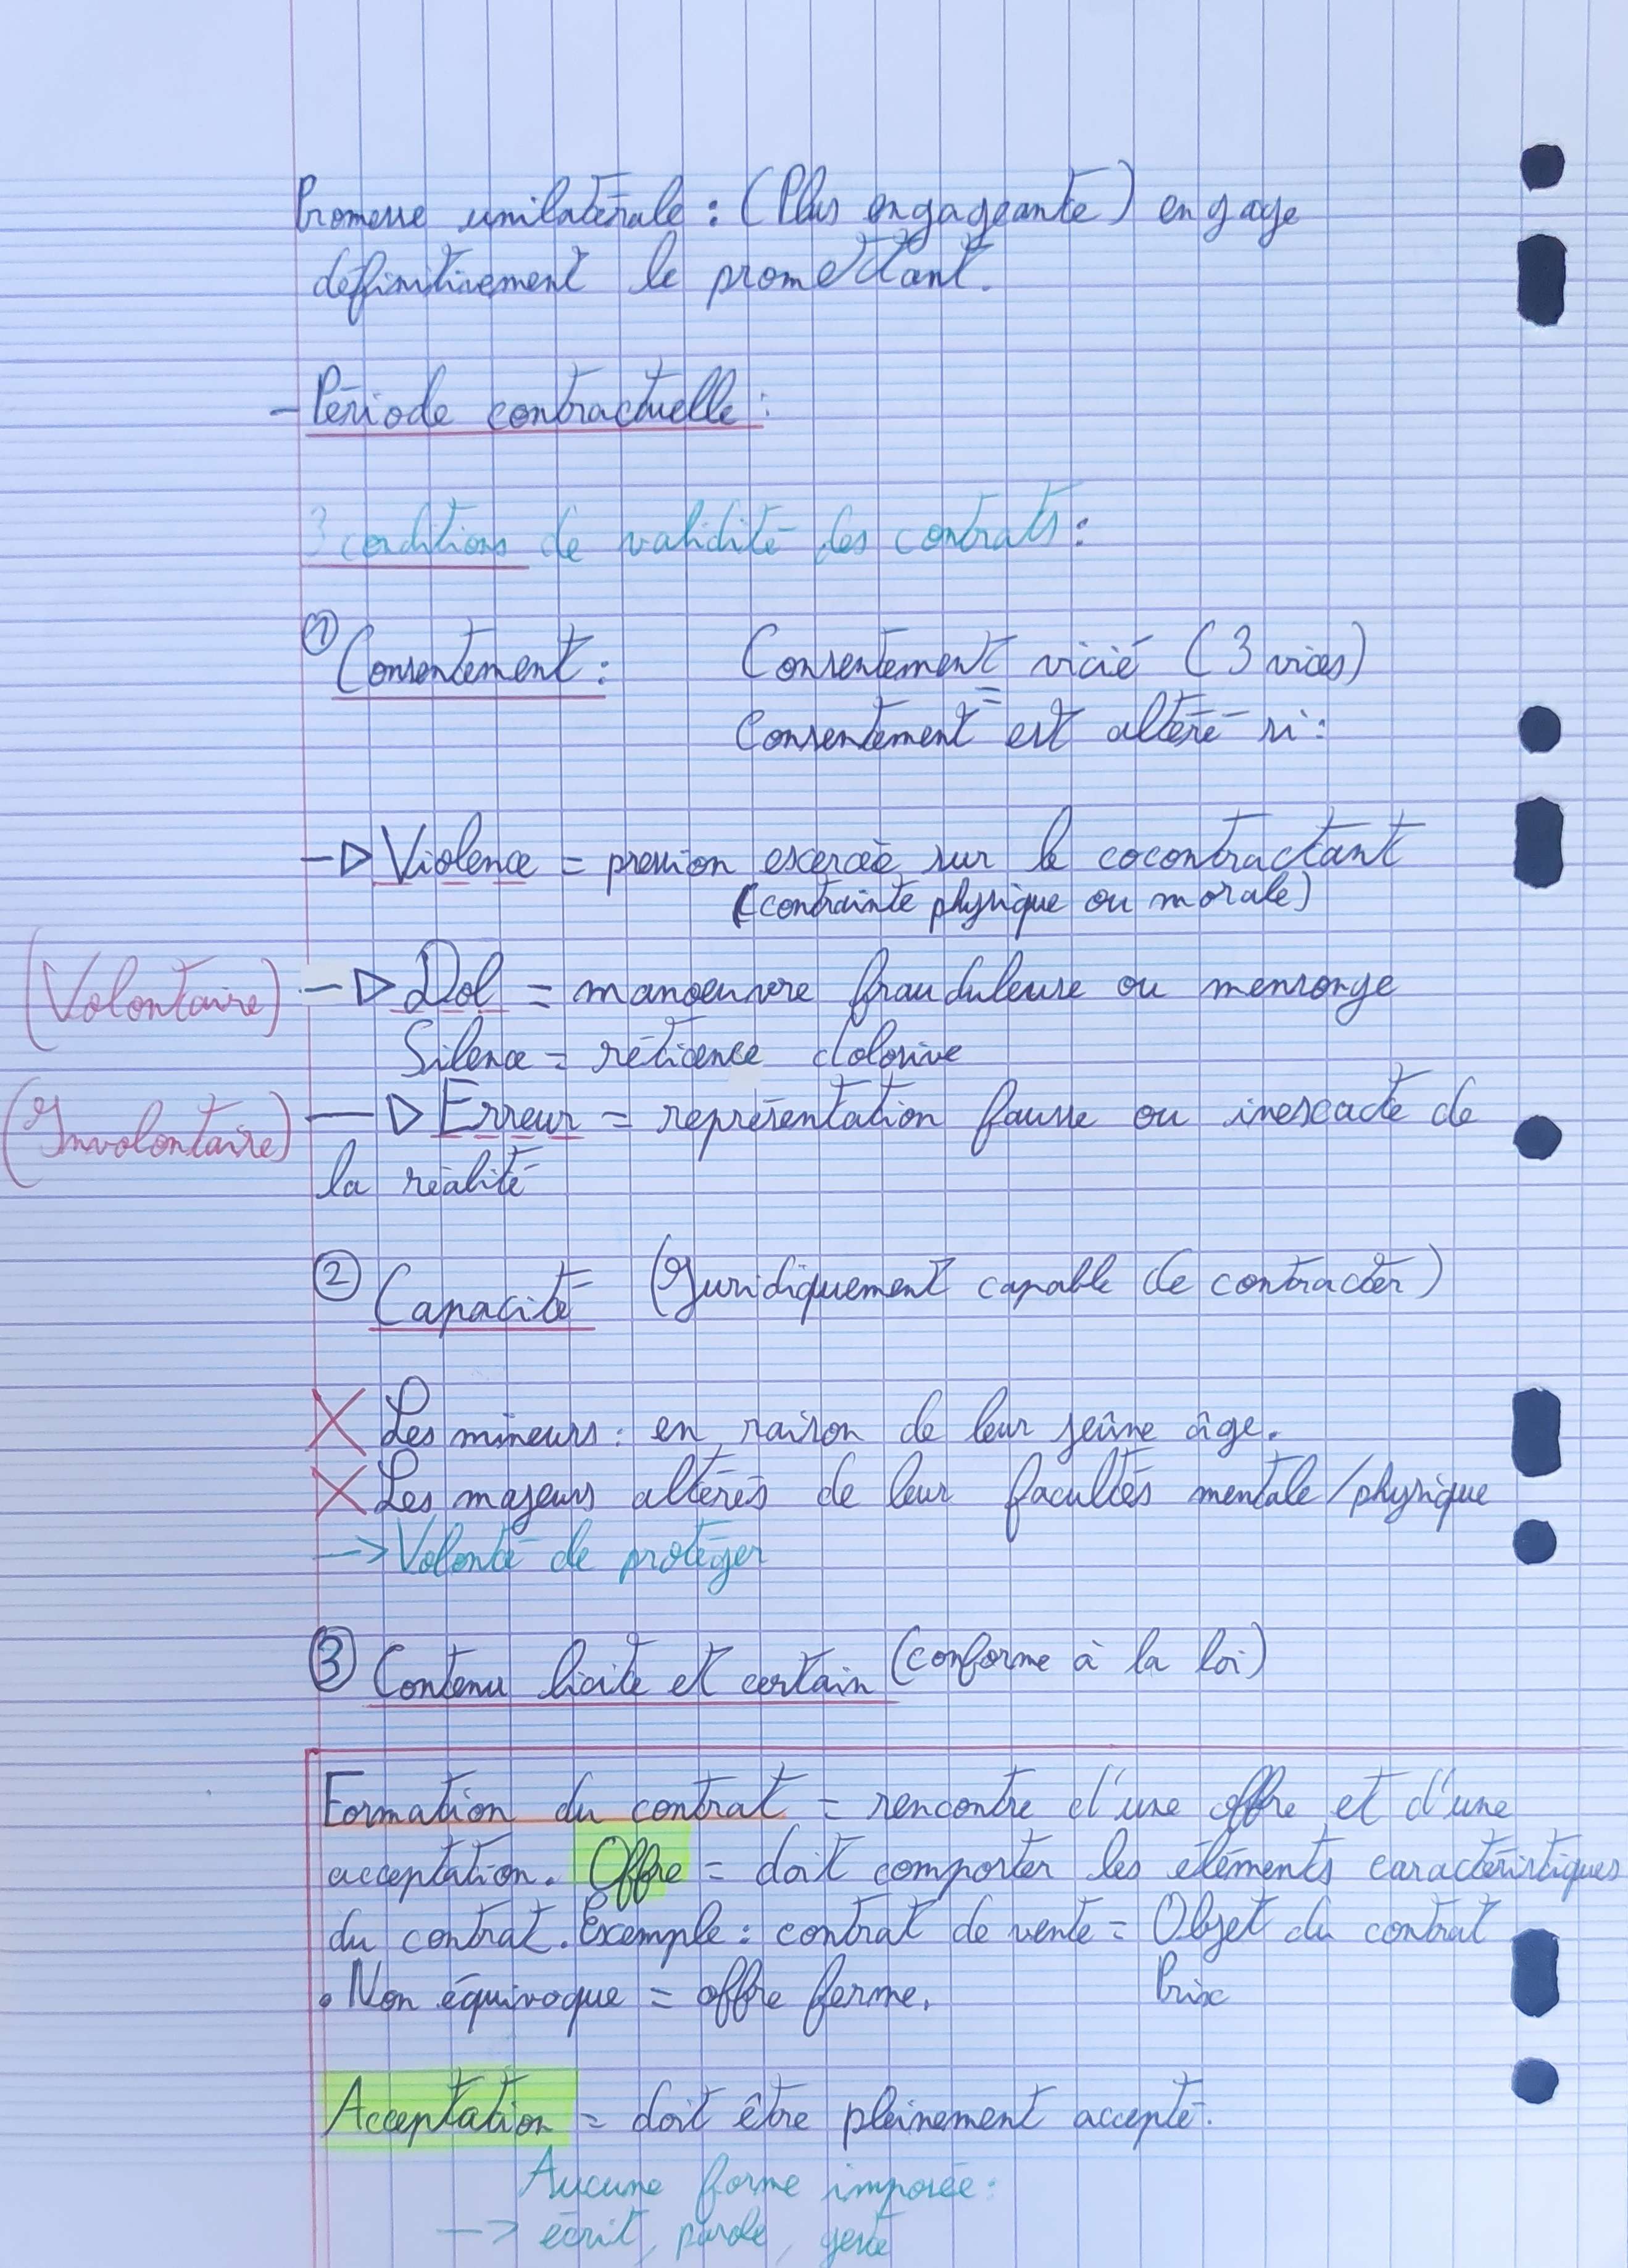 Promesse unilatérale : (Plus engageante) engage
définitivement le promettant.
- Période contractuelle :
3 conditions de validité des contrats :
① Consentement : Consentement vicié (3 vices)
=
Consentement est altéré si :
→ Violence = pression exercée sur le cocontractant
(contrainte physique ou morale)
(Volontaire) → Dol = manoeuvre frauduleuse ou mensonge
Silence = réticence dolosive
(Involontaire) → Erreur = représentation fausse ou inexacte de
la réalité
② Capacité (Juridiquement capable de contracter)
X Les mineurs : en raison de leur jeûne âge.
X Les majeurs altérés de leur facultés mentale/physique
→ Volonté de protéger
③ Contenu licite et certain (conforme à la loi)
Formation du contrat = rencontre d'une offre et d'une
acceptation. Offre = doit comporter les éléments caractéristiques
du contrat. Exemple : contrat de vente = Objet du contrat
• Non équivoque = offre ferme. Prix
Acceptation = doit être pleinement accepté.
Aucune forme imposée :
→ écrit, parole, geste